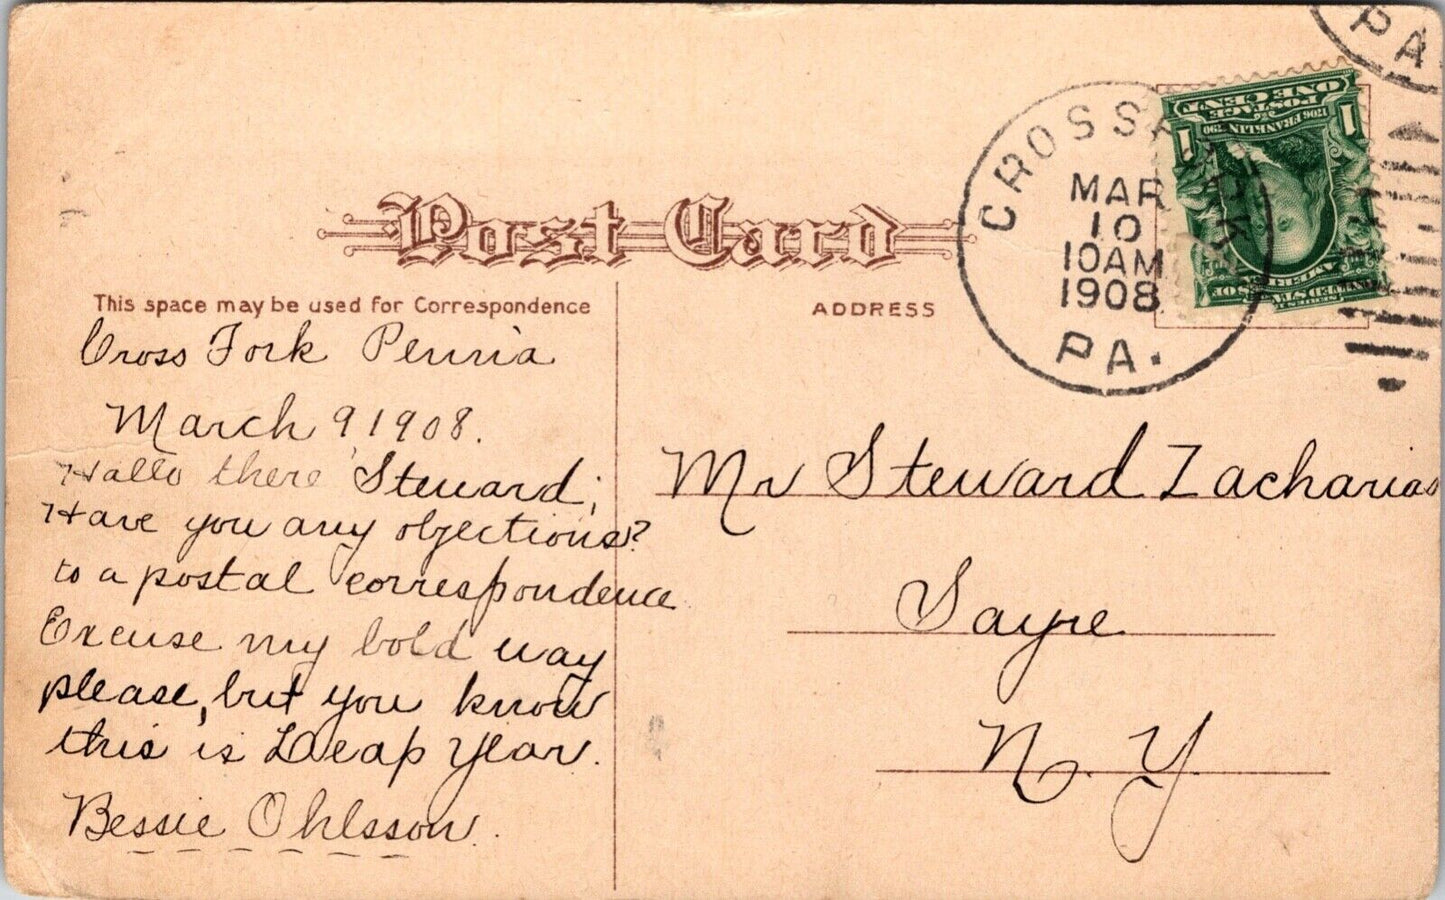 Post Card
This space may be used for Correspondence
ADDRESS
CROSS FORK
MAR
10
10AM
1908
PA.
PA
1 1
POSTAGE
ONE CENT
1706 FRANKLIN 1790
SERIES 1902
UNITED STATES OF AMERICA
Cross Fork Penna
March 9 1908.
Hallo there Steward;
Have you any objections?
to a postal correspondence
Excuse my bold way
please, but you know
this is Leap Year.
Bessie Ohlsson.
Mr Steward Zacharias
Sayre
N. Y.